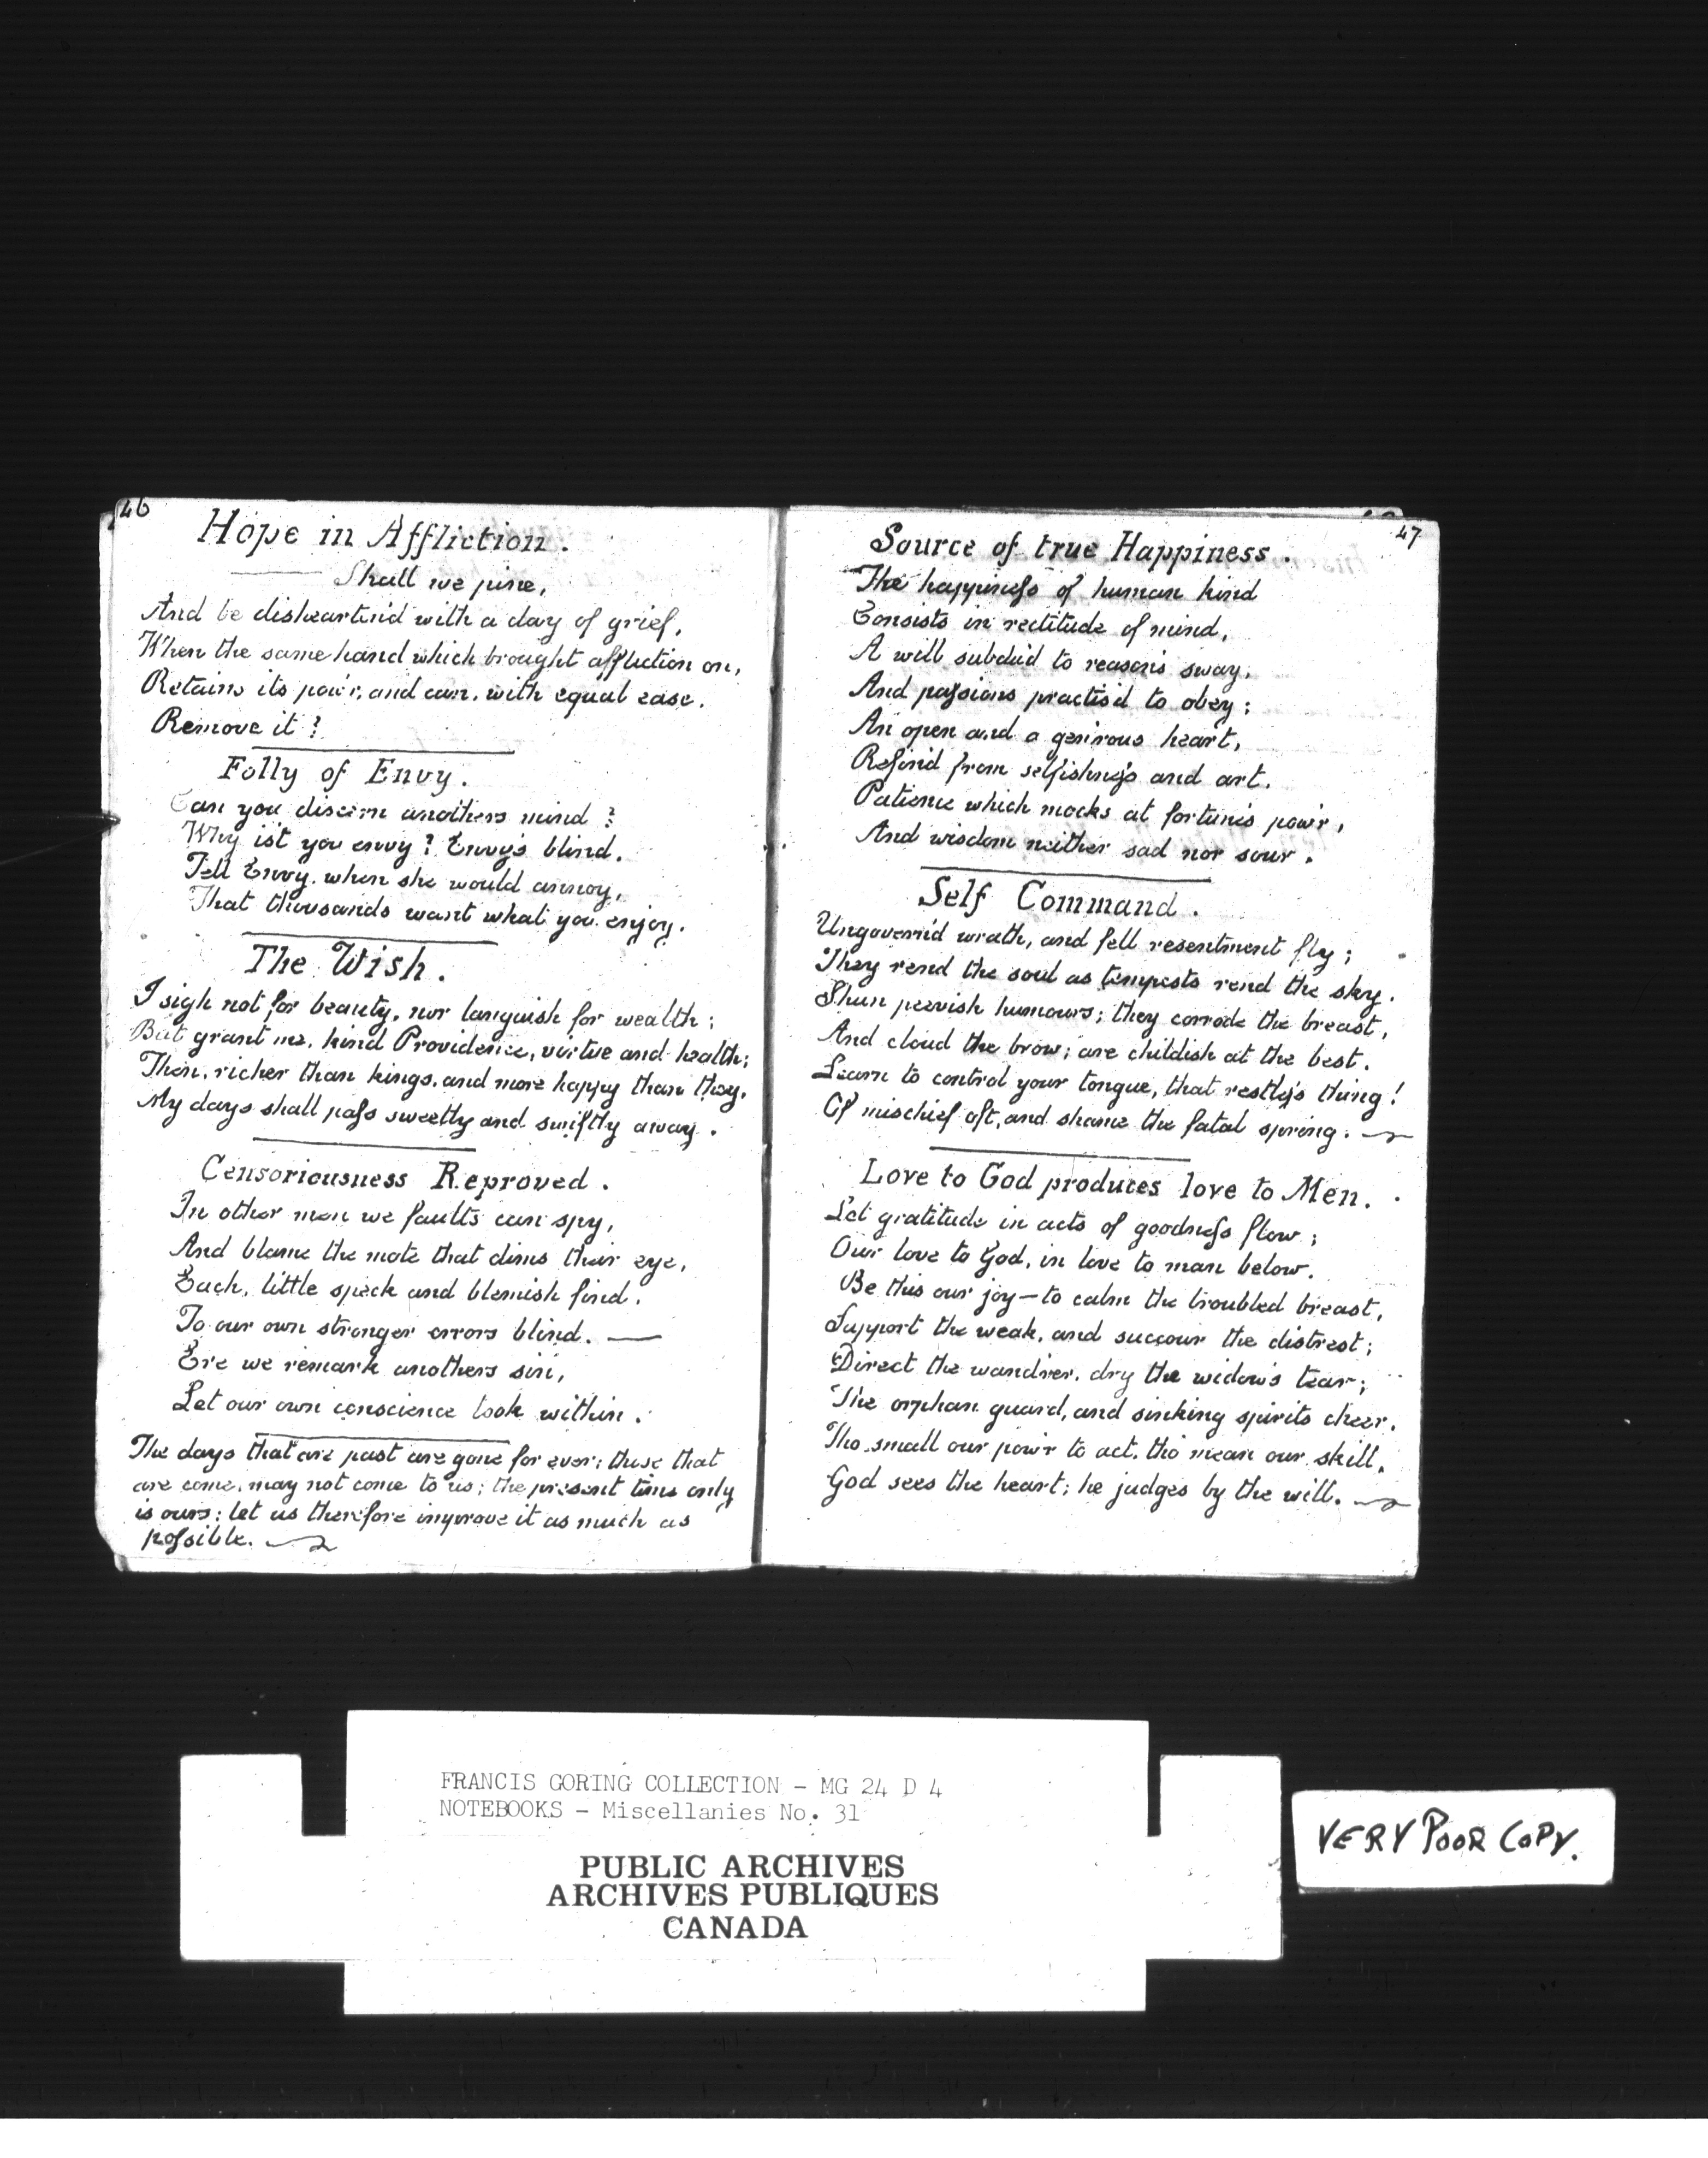 46
Hope in Affliction.
Shall we pine,
And be disheartin'd with a day of grief,
When the same hand which brought affliction on,
Retains its pow'r, and can, with equal ease,
Remove it?
Folly of Envy.
Can you discern anothers mind?
Why is't you envy? Envy's blind.
Tell Envy, when she would annoy,
That thousands want what you enjoy.
The Wish.
I sigh not for beauty, nor languish for wealth;
But grant me, kind Providence, virtue and health;
Then, richer than kings, and more happy than they,
My days shall paſs sweetly and swiftly away.
Censoriousness Reproved.
In other men we faults can spy,
And blame the mote that dims their eye,
Each, little speck and blemish find,
To our own stronger errors blind. —
Ere we remark anothers sin,
Let our own conscience look within.
The days that are past are gone for ever; those that
are come, may not come to us; the present time only
is ours; let us therefore improve it as much as
poſsible.
47
Source of true Happiness.
The happineſs of human kind
Consists in rectitude of mind,
A will subdu'd to reason's sway,
And paſsions practis'd to obey;
An open and a gen'rous heart,
Refin'd from selfishneſs and art.
Patience which mocks at fortune's pow'r,
And wisdom neither sad nor sour.
Self Command.
Ungovern'd wrath, and fell resentment fly;
They rend the soul as tempests rend the sky.
Shun peevish humours; they corrode the breast,
And cloud the brow; are childish at the best.
Learn to control your tongue, that restleſs thing!
Of mischief oft, and shame the fatal spring.
Love to God produces love to Men.
Let gratitude in acts of goodneſs flow;
Our love to God, in love to man below.
Be this our joy—to calm the troubled breast,
Support the weak, and succour the distrest;
Direct the wand'rer, dry the widow's tear;
The orphan guard, and sinking spirits cheer.
Tho small our pow'r to act, tho' mean our skill,
God sees the heart; he judges by the will.
FRANCIS GORING COLLECTION - MG 24 D 4
NOTEBOOKS - Miscellanies No. 31
PUBLIC ARCHIVES
ARCHIVES PUBLIQUES
CANADA
VERY POOR COPY.